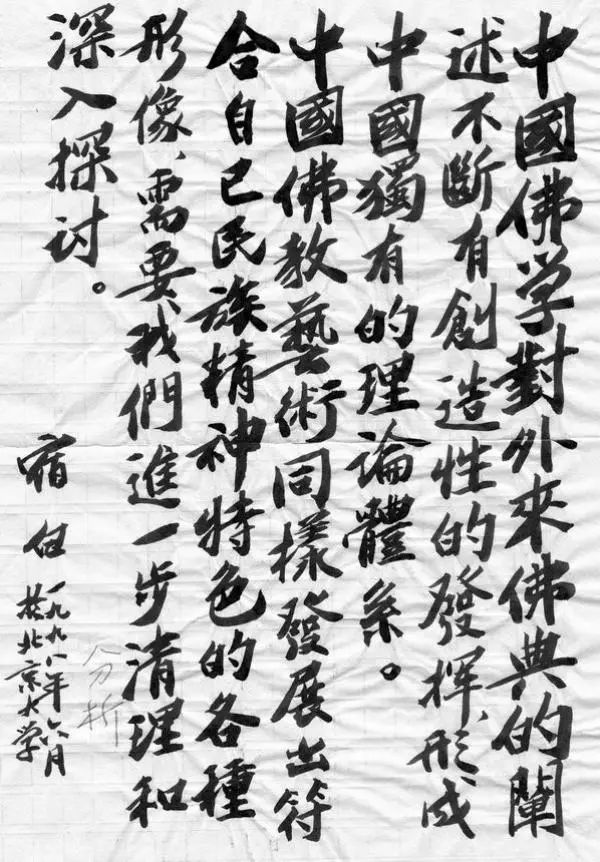 中國佛学對外來佛典的闡
述不斷有創造性的發揮、形成
中國獨有的理論體系。
中國佛教藝術同樣發展出符
合自己民族精神特色的各種
形像、需要我們進一步清理和
深入探讨。
宿白
一九九八年六月
於北京大学
分析